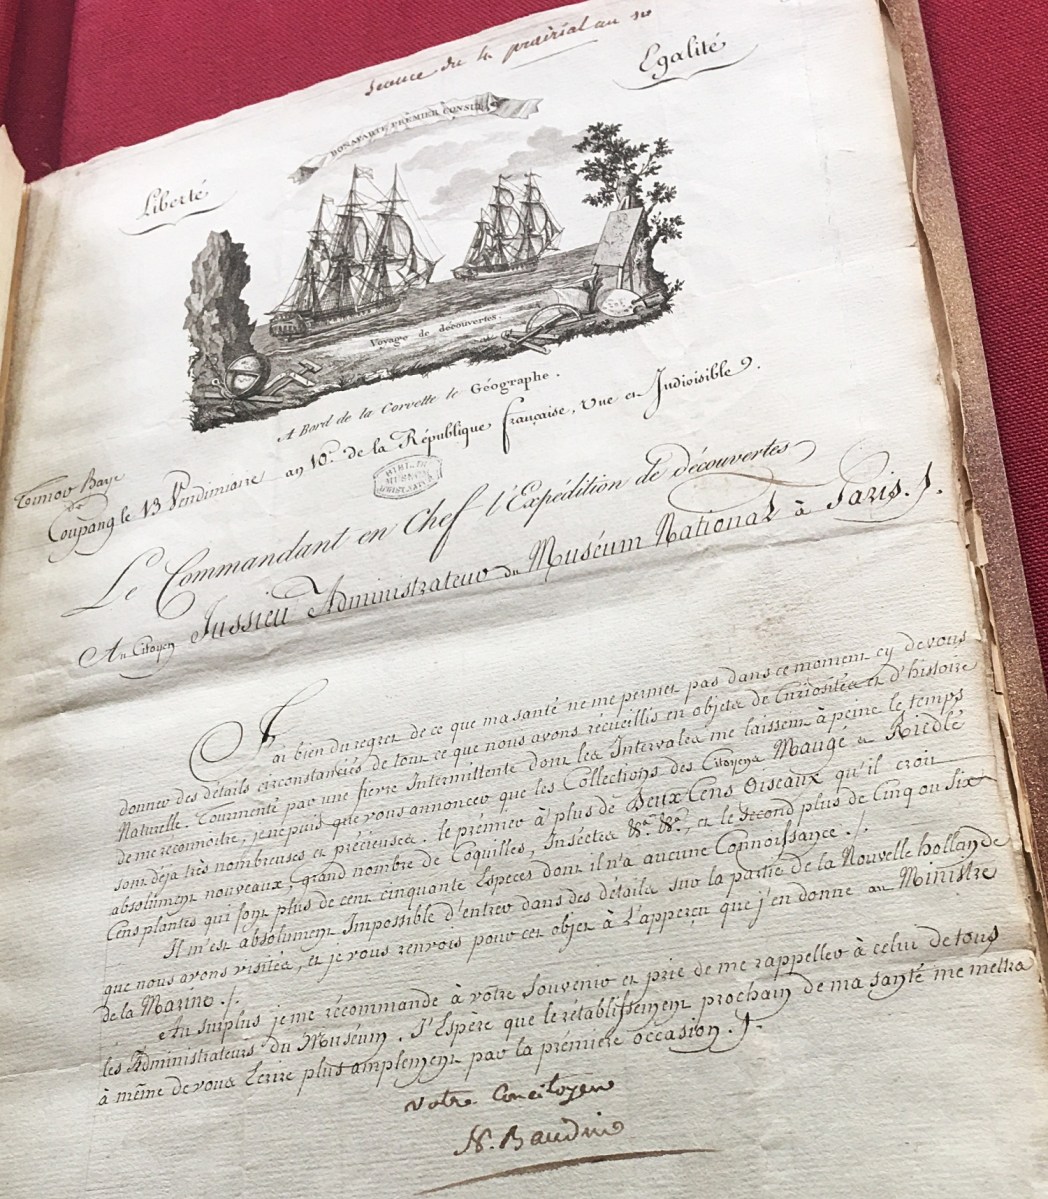 Seance du 4 prairial an 10
Liberté
BONAPARTE PREMIER CONSUL
Egalité
Voyage de découvertes.
A Bord de la Corvette le Géographe.
Coupang le 13 Vendimiaire an 10e. de la République française, Une et Indivisible.
Le Commandant en Chef l'Expédition de découvertes
Au Citoyen Jussieu Administrateur du Muséum National à Paris ./.
J'ai bien du regret de ce que ma santé ne me permet pas dans ce moment cy de vous
donner des détails circonstanciés de tout ce que nous avons recueillis en objets de Curiosités et d'histoire
Naturelle. Tourmenté par une fievre Intermittente dont les Intervales me laissent à peine le temps
de me reconnoitre, je ne puis que vous annoncer que les Collections des Citoyens Maugé et Riedlé
sont déja très nombreuses et précieuses. le prémier à plus de Deux Cens Oiseaux qu'il croit
absolument nouveaux, grand nombre de Coquilles, Insectes &a. &a., et le second plus de Cinq ou Six
Cens plantes qui font plus de cent cinquante Especes dont il n'a aucune Connoissance ./.
Il m'est absolument Impossible d'entrer dans des détails sur la partie de la Nouvelle hollande
que nous avons visitée, et je vous renvois pour cet objet à L'apperçu que j'en donne au Ministre
de la Marine ./.
Au surplus je me récommande à votre Souvenir et prie de me rappeller à celui de tous
les Administrateurs du Muséum. J'Espère que le rétablissement prochain de ma santé me mettra
à même de vous Ecrire plus amplement par la prémière occasion ./.
Votre Concitoyen
N. Baudin